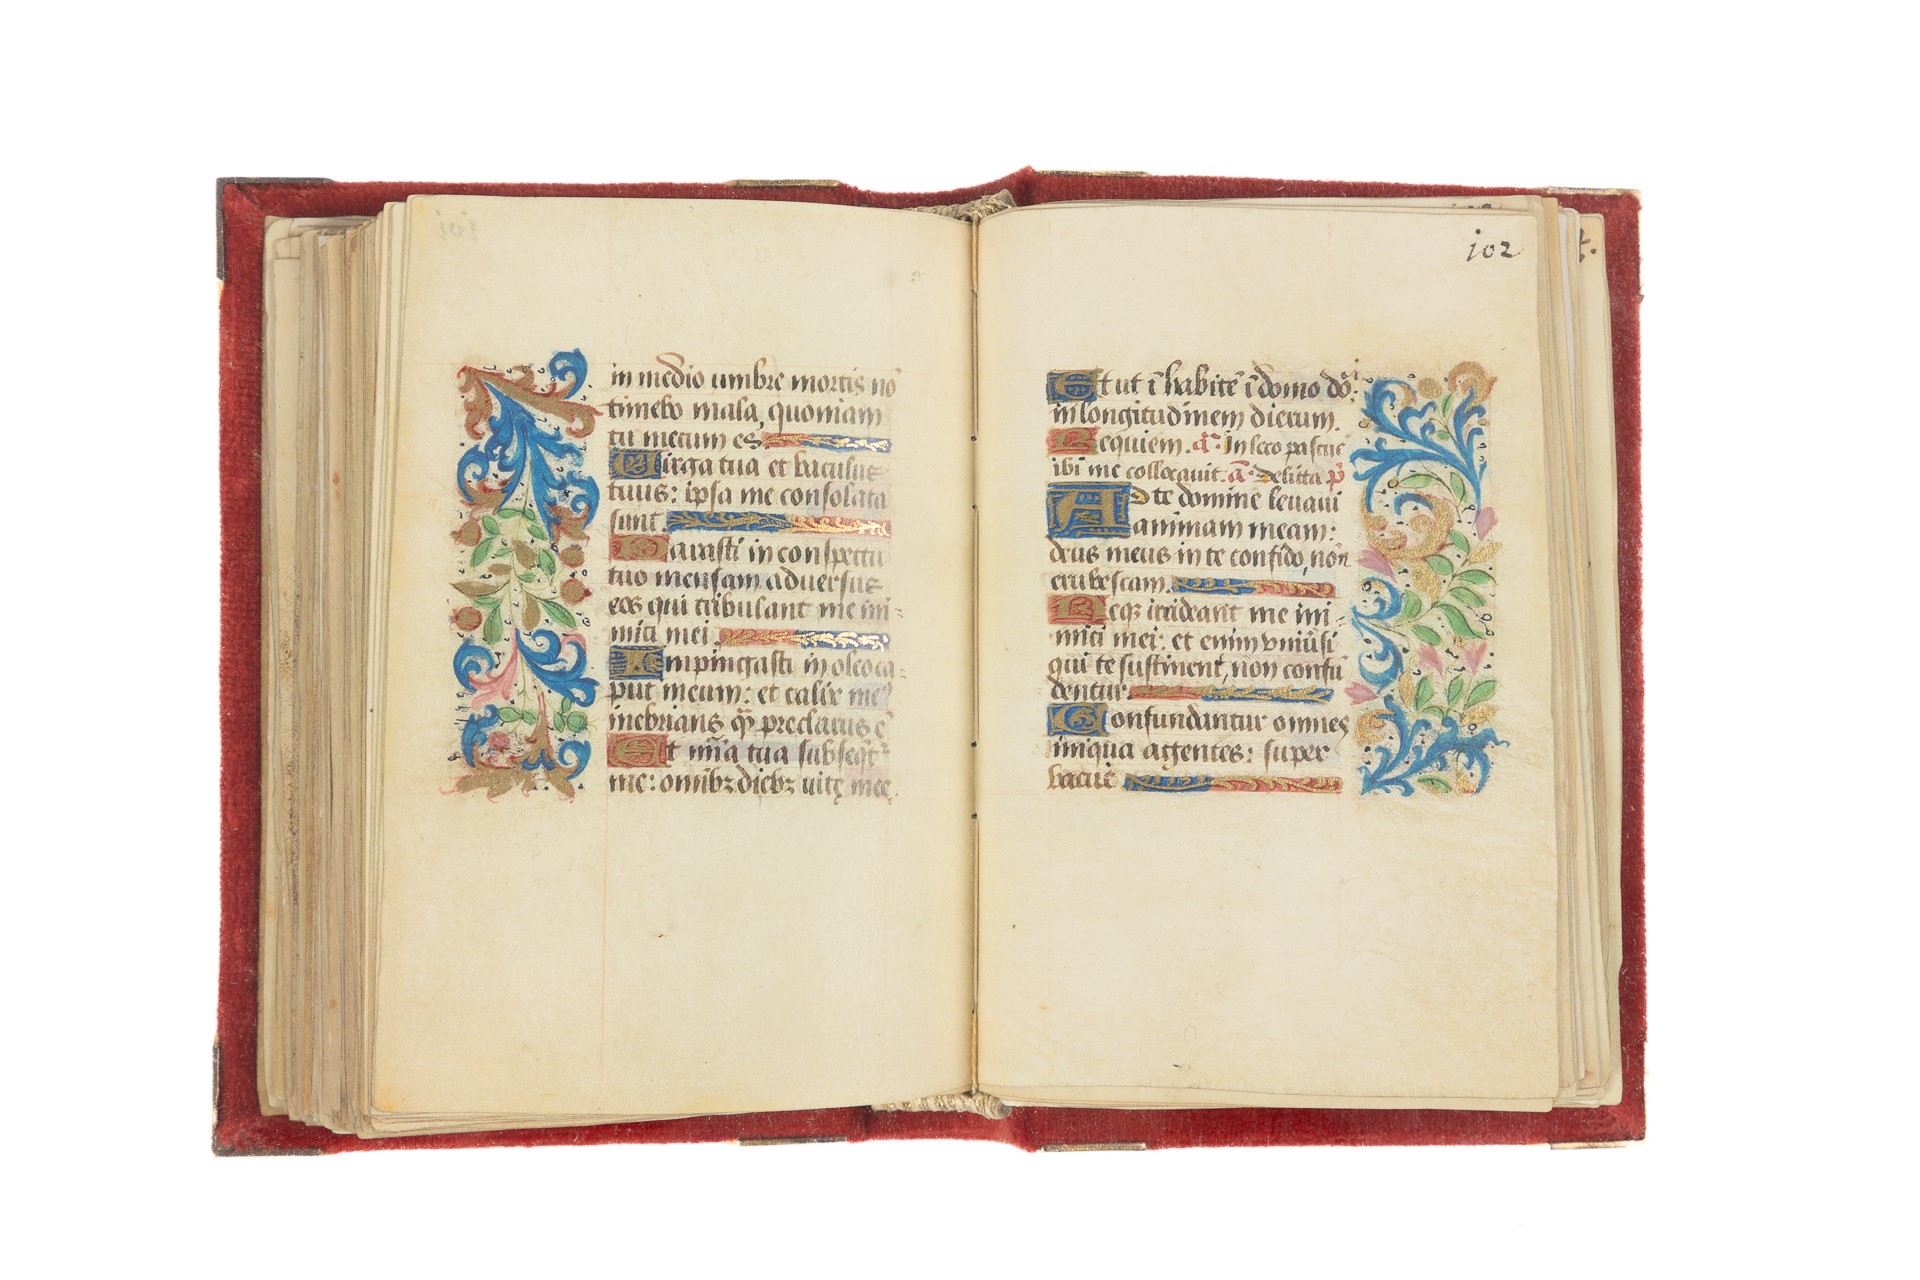 in medio umbre mortis nō
timebo mala, quoniam
tu mecum es
Virga tua et baculus
tuus: ipsa me consolata
sunt
Parasti in conspectu
tuo mensam adversus
eos qui tribulant me ini-
mici mei
Impingasti in oleo ca-
put meum: et calix me9
inebrians q̄ꝫ preclarus ē
Et mīa tua subseqt̄
me: omībꝫ diebꝫ vitę meę
i02
Et ut ī habitē ī domo dōi
in longitudinem dierum.
Requiem. a. In loco pascue
ibi me collocavit. ā. delicta p̄
Ad te domine levavi
animam meam:
deus meus in te confido, non
erubescam
Neqꝫ irrideant me ini
mici mei: et enim universi
qui te sustinent, non confū
dentur.
Confundantur omnes
iniqua agentes: super
vacue